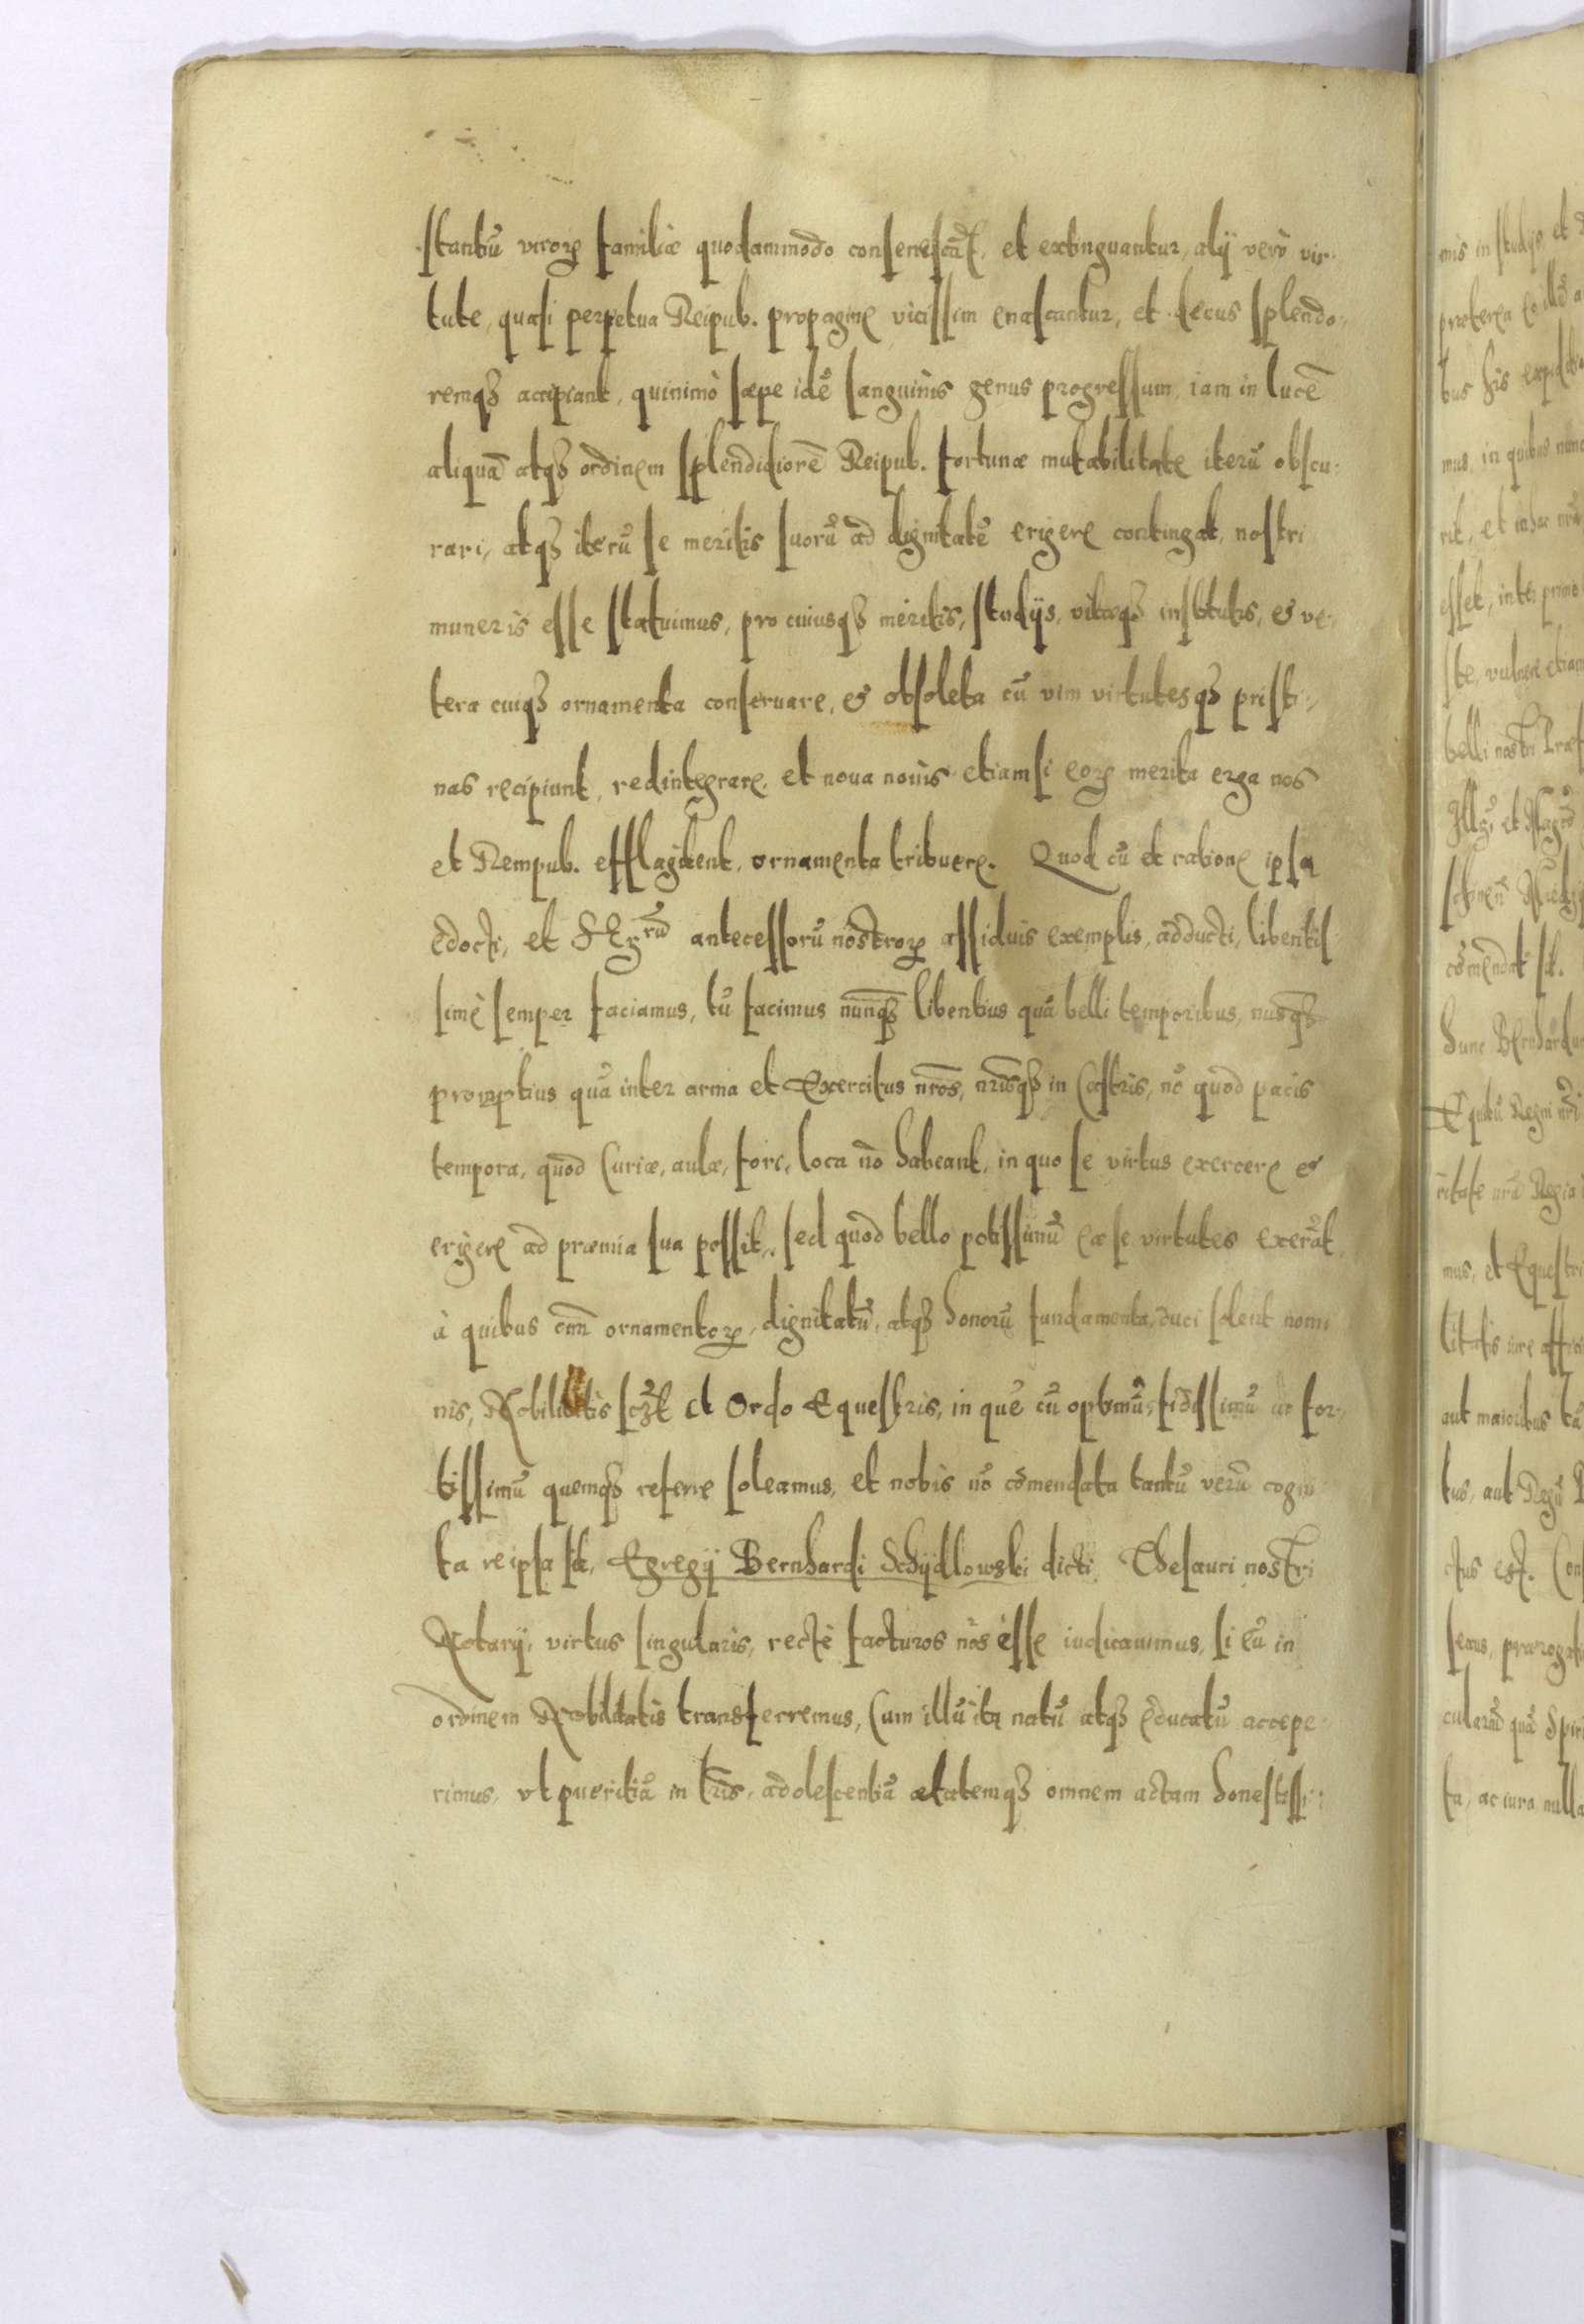 stantiũ viroꝝ familiæ quodammodo consenescãt, et extinguantur, alÿ verò vir-
tute, quasi perpetua Reipub. propagine vicissim enascantur, et decus splendo-
remqȝ accipiant, quinimò sæpe idẽ sanguinis genus progressum, iam in lucẽ
aliquã atqȝ ordinem splendidiorẽ Reipub. fortunæ mutabilitate iterũ obscu-
rari, atqȝ iterũ se meritis suorũ ad dignitatẽ erigere contingat, nostri
muneris esse statuimus, pro cuiusqȝ meritis, studÿs, vitæqȝ institutis, & ve-
tera cuiqȝ ornamenta conseruare, & obsoleta cũ vim virtutesqȝ pristi-
nas recipiunt, redintegrare, et noua nouis etiam si eoꝝ merita erga nos
et Rempub. efflagitent, ornamenta tribuere. Quod cũ et ratione ipsa
edocti, et antecessorũ nostroꝝ assiduis exemplis, adducti, libentis
simè semper faciamus, tũ facimus nunqȝ libentius quã belli temporibus, nusqȝ
promptius quã inter arma et Exercitus nr̃os, nr̃isqȝ in Castris, nõ quod pacis
tempora, quod Curiæ, aulæ, fora, loca nõ habeant, in quo se virtus exercere &
erigere ad præmia sua possit, sed quod bello potissimũ eæ se virtutes exerãt,
à quibus om̃ ornamentoꝝ, dignitatũ, atqȝ honorũ fundamenta duci solent nomi
nis, Nobilitatis et Ordo Equestris, in quẽ cũ optimũ, fidissimũ ac for-
tissimũ quemqȝ referre soleamus, et nobis nõ cõmendata tantũ verũ cogni
ta reipsa sit, Egregÿ Bernhardi Schÿdlowski dicti Thesauri nostri
Notarÿ, virtus singularis, rectè facturos nos esse iudicauimus, si eũ in
ordinem Nobilitatis transferremus, Cum illũ ita natũ atqȝ educatũ accepe-
rimus, vt pueritiã in lr̃is, adolescentiã ætatemqȝ omnem actam honestissi-